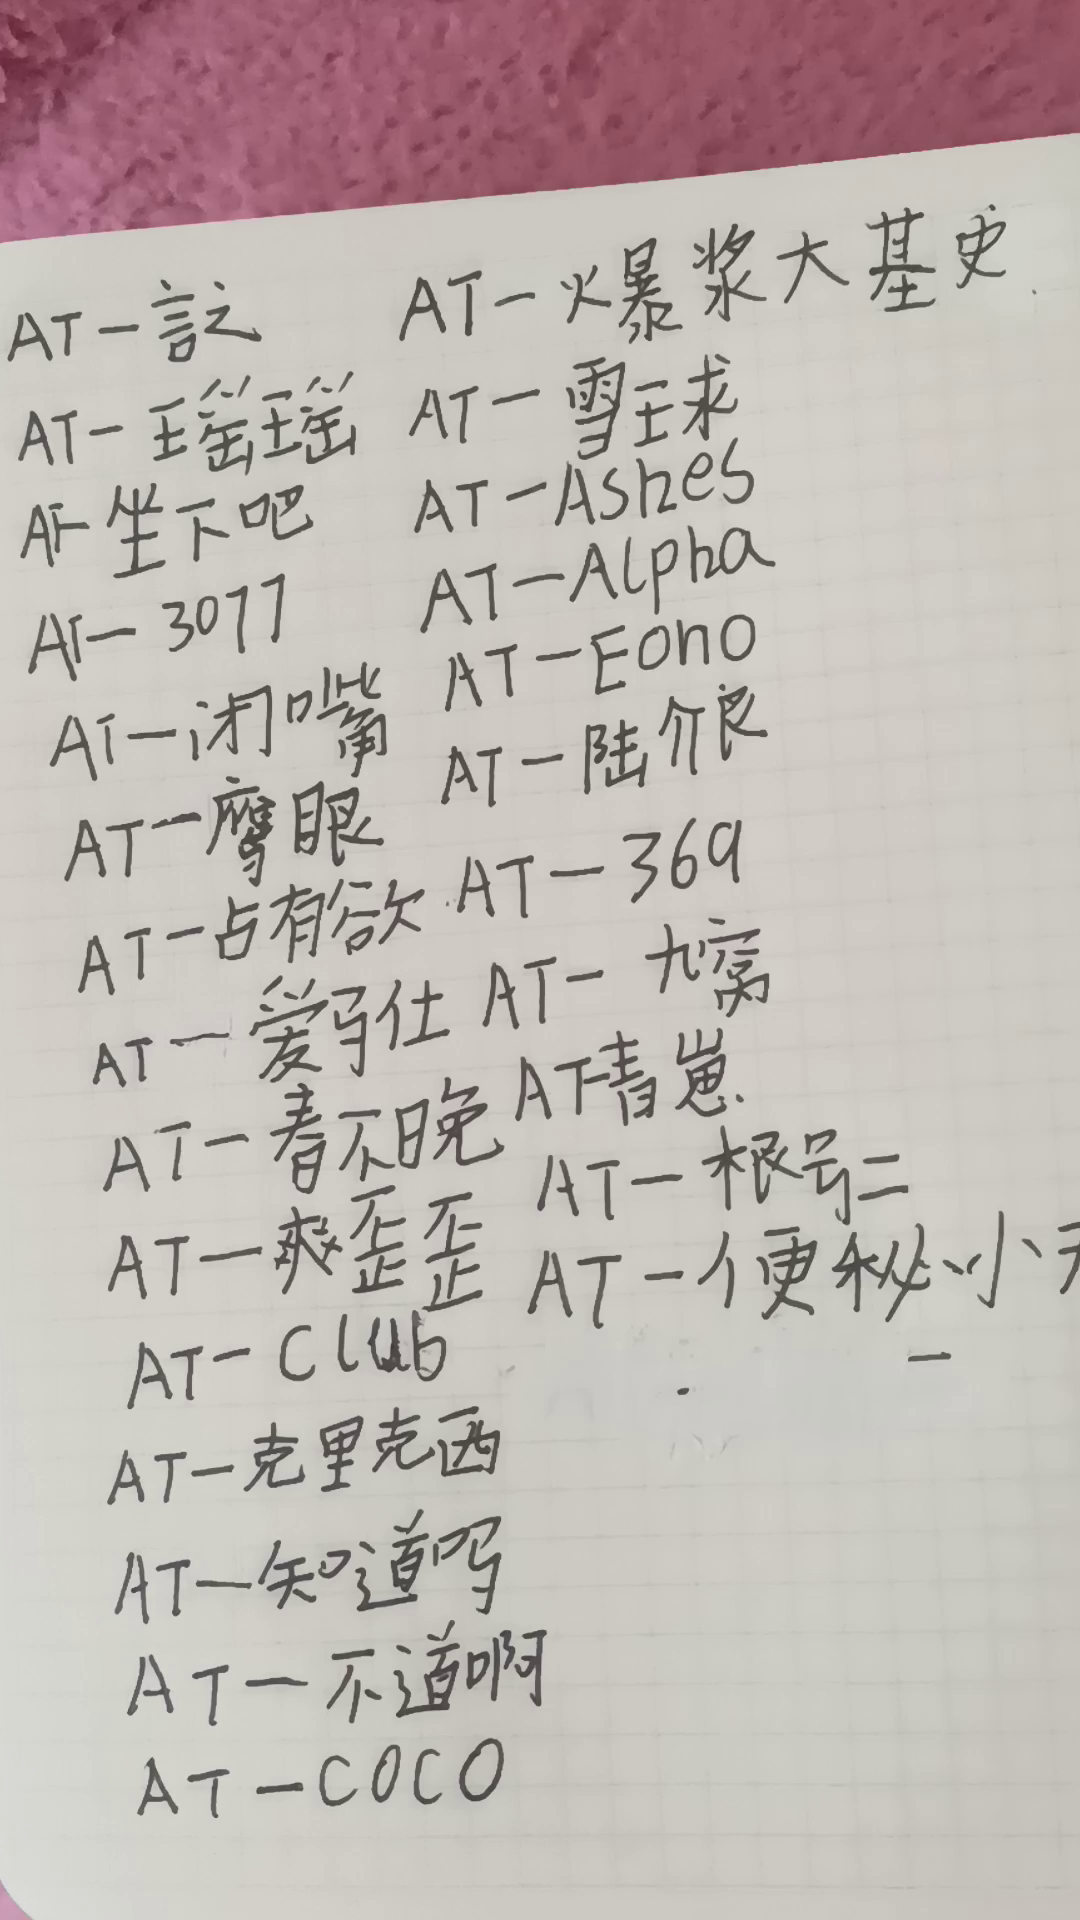 AT-言之
AT-瑶瑶
AT-坐下吧
AT-3077
AT-闭嘴
AT-鹰眼
AT-占有欲
AT-爱弓仕
AT-春不晚
AT-爽歪歪
AT-Club
AT-克里克西
AT-知道吗
AT-不道啊
AT-COCO
AT-爆浆大基吏
AT-雪球
AT-Ashes
AT-Alpha
AT-Eono
AT-陆
AT-369
AT-九窝
AT-青崽
AT-根号二
AT-便秘小天